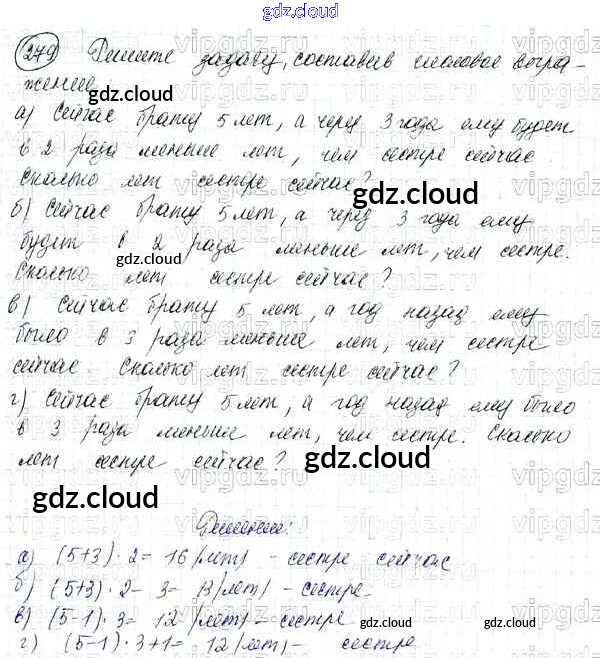 gdz.cloud
279 Решите задачу, составив числовое выра-
жение.
а) Сейчас брату 5 лет, а через 3 года ему будет
в 2 раза меньше лет, чем сестре сейчас.
Сколько лет сестре сейчас?
gdz.cloud
б) Сейчас брату 5 лет, а через 3 года ему
будет в 2 раза меньше лет, чем сестре.
gdz.cloud
Сколько лет сестре сейчас?
в) Сейчас брату 5 лет, а год назад ему
было в 3 раза меньше лет, чем сестре
сейчас. Сколько лет сестре сейчас?
г) Сейчас брату 5 лет, а год назад ему было
в 3 раза меньше лет, чем сестре. Сколько
лет сестре сейчас?
gdz.cloud
gdz.cloud
Решение:
а) (5+3)·2= 16 (лет) - сестре сейчас
б) (5+3)·2-3= 13 (лет) - сестре
в) (5-1)·3= 12 (лет) - сестре
gdz.cloud gdz.cloud
г) (5-1)·3+1= 12 (лет) - сестре